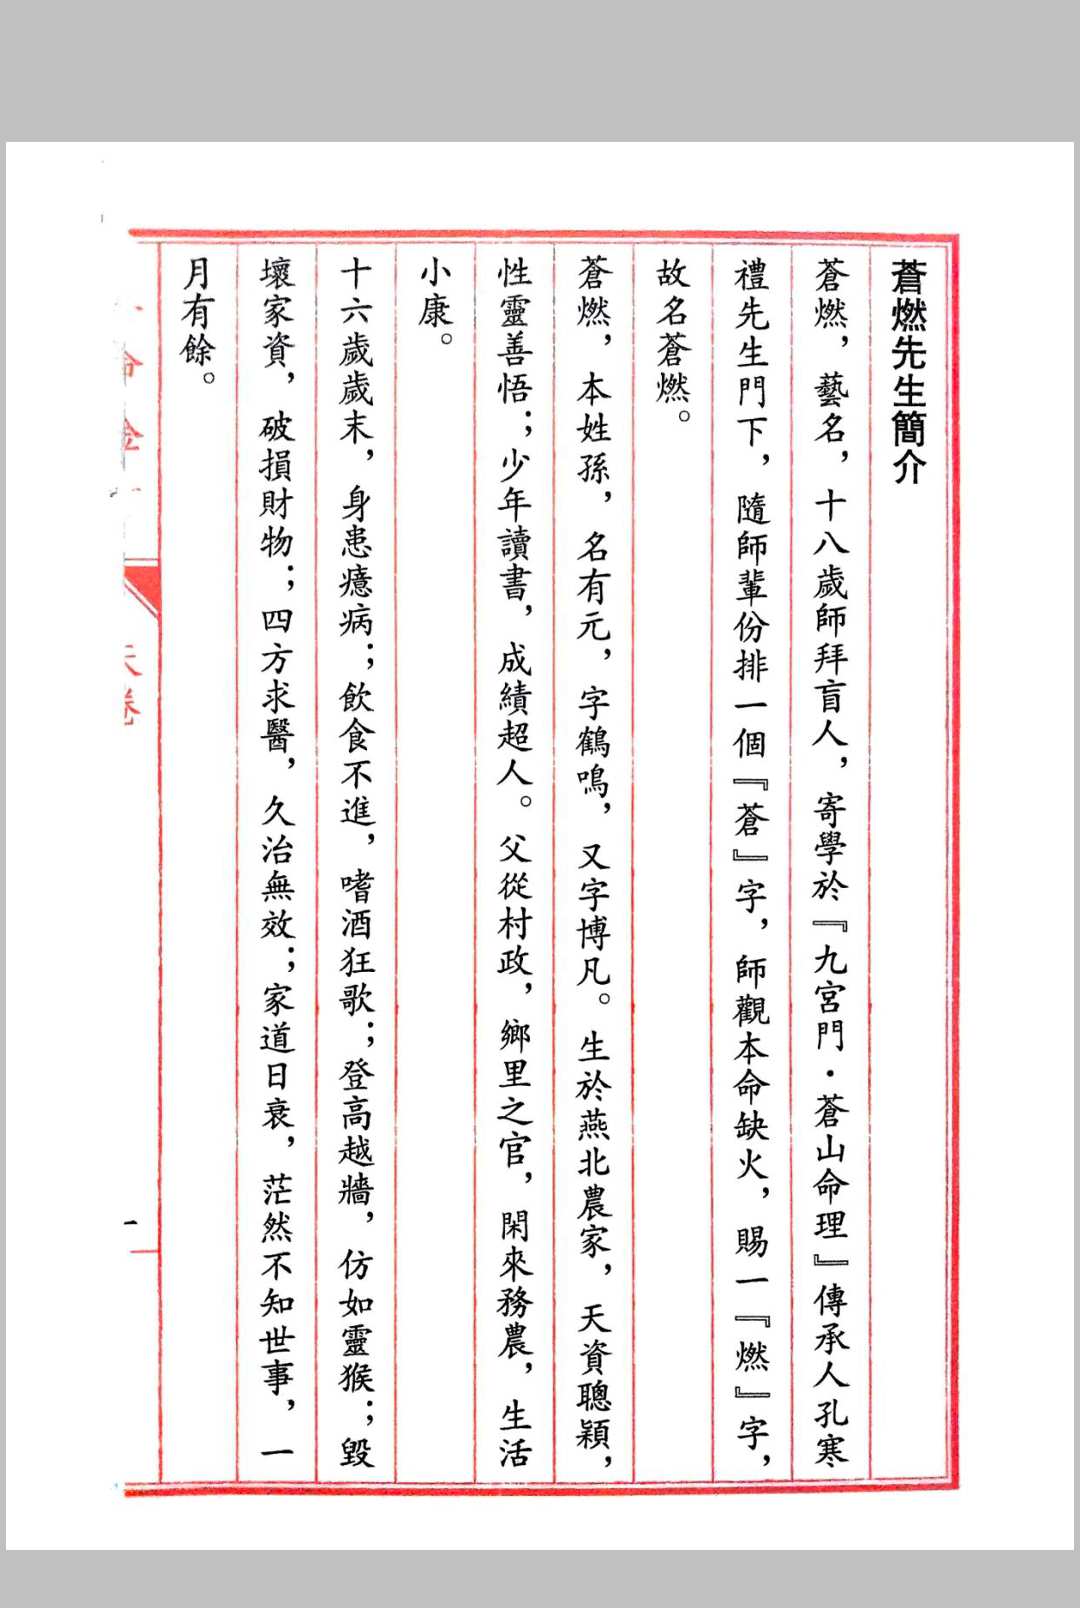 蒼燃先生簡介
蒼燃，藝名，十八歲師拜盲人，寄學於『九宮門·蒼山命理』傳承人孔寒
禮先生門下，隨師輩份排一個『蒼』字，師觀本命缺火，賜一『燃』字，
故名蒼燃。
蒼燃，本姓孫，名有元，字鶴鳴，又字博凡。生於燕北農家，天資聰穎，
性靈善悟；少年讀書，成績超人。父從村政，鄉里之官，閑來務農，生活
小康。
十六歲歲末，身患癔病；飲食不進，嗜酒狂歌；登高越牆，仿如靈猴；毀
壞家資，破損財物；四方求醫，久治無效；家道日衰，茫然不知世事，一
月有餘。
天卷
一